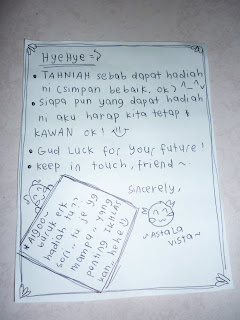 HyeHye =)
• TAHNIAH sebab dapat hadiah
ni (simpan bebaik, ok) ^_^
• siapa pun yang dapat hadiah
ni aku harap kita tetap
KAWAN ok!
• Gud Luck for your future!
• keep in touch, friend ~
Sincerely,
~ Asta La
Vista ~
Algoo~
buruk erk
hadiah tu??
sori~ tu je yg
mampu~ yang
penting ikhlas
san.. hehe :)